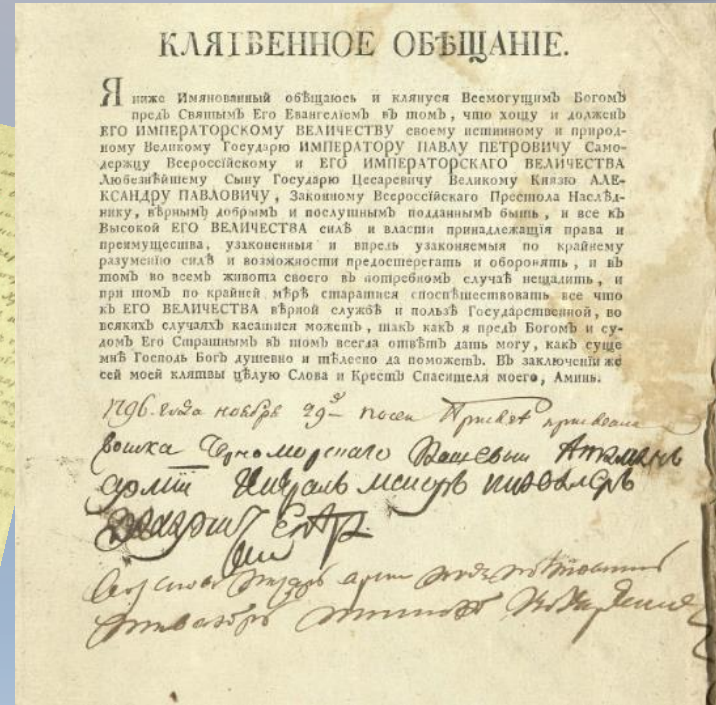 КЛЯТВЕННОЕ ОБѢЩАНІЕ.
Я ниже Имянованный обѣщаюсь и клянуся Всемогущимъ Богомъ
предъ Святымъ Его Евангелїемъ въ томъ, что хощу и долженъ
ЕГО ИМПЕРАТОРСКОМУ ВЕЛИЧЕСТВУ своему истинному и природ-
ному Великому Государю ИМПЕРАТОРУ ПАВЛУ ПЕТРОВИЧУ Само-
держцу Всероссїйскому и ЕГО ИМПЕРАТОРСКАГО ВЕЛИЧЕСТВА
Любезнѣйшему Сыну Государю Цесаревичу Великому Князю АЛЕ-
КСАНДРУ ПАВЛОВИЧУ, Законному Всероссїйскаго Престола Наслѣд-
нику, вѣрнымъ добрымъ и послушнымъ подданнымъ быть, и все къ
Высокой ЕГО ВЕЛИЧЕСТВА силѣ и власти принадлежащїя права и
преимущества, узаконенныя и впредь узаконяемыя по крайнему
разумѣнїю силѣ и возможности предостерегать и оборонять, и въ
томъ во всемъ живота своего въ потребномъ случаѣ нещадить, и
при томъ по крайней мѣрѣ старатися споспѣшествовать все что
къ ЕГО ВЕЛИЧЕСТВА вѣрной службѣ и пользѣ Государственной, во
всякихъ случаяхъ касатися можетъ, такъ какъ я предъ Богомъ и су-
домъ Его Страшнымъ въ томъ всегда отвѣтъ дать могу, какъ суще
мнѣ Господь Богъ душевно и тѣлесно да поможетъ. Въ заключенїи же
сей моей клятвы цѣлую Слова и Крестъ Спасителя моего, Аминь.
1796 года ноября 29 по сей
воиска Черноморскаго Атаманъ
армїи маиоръ